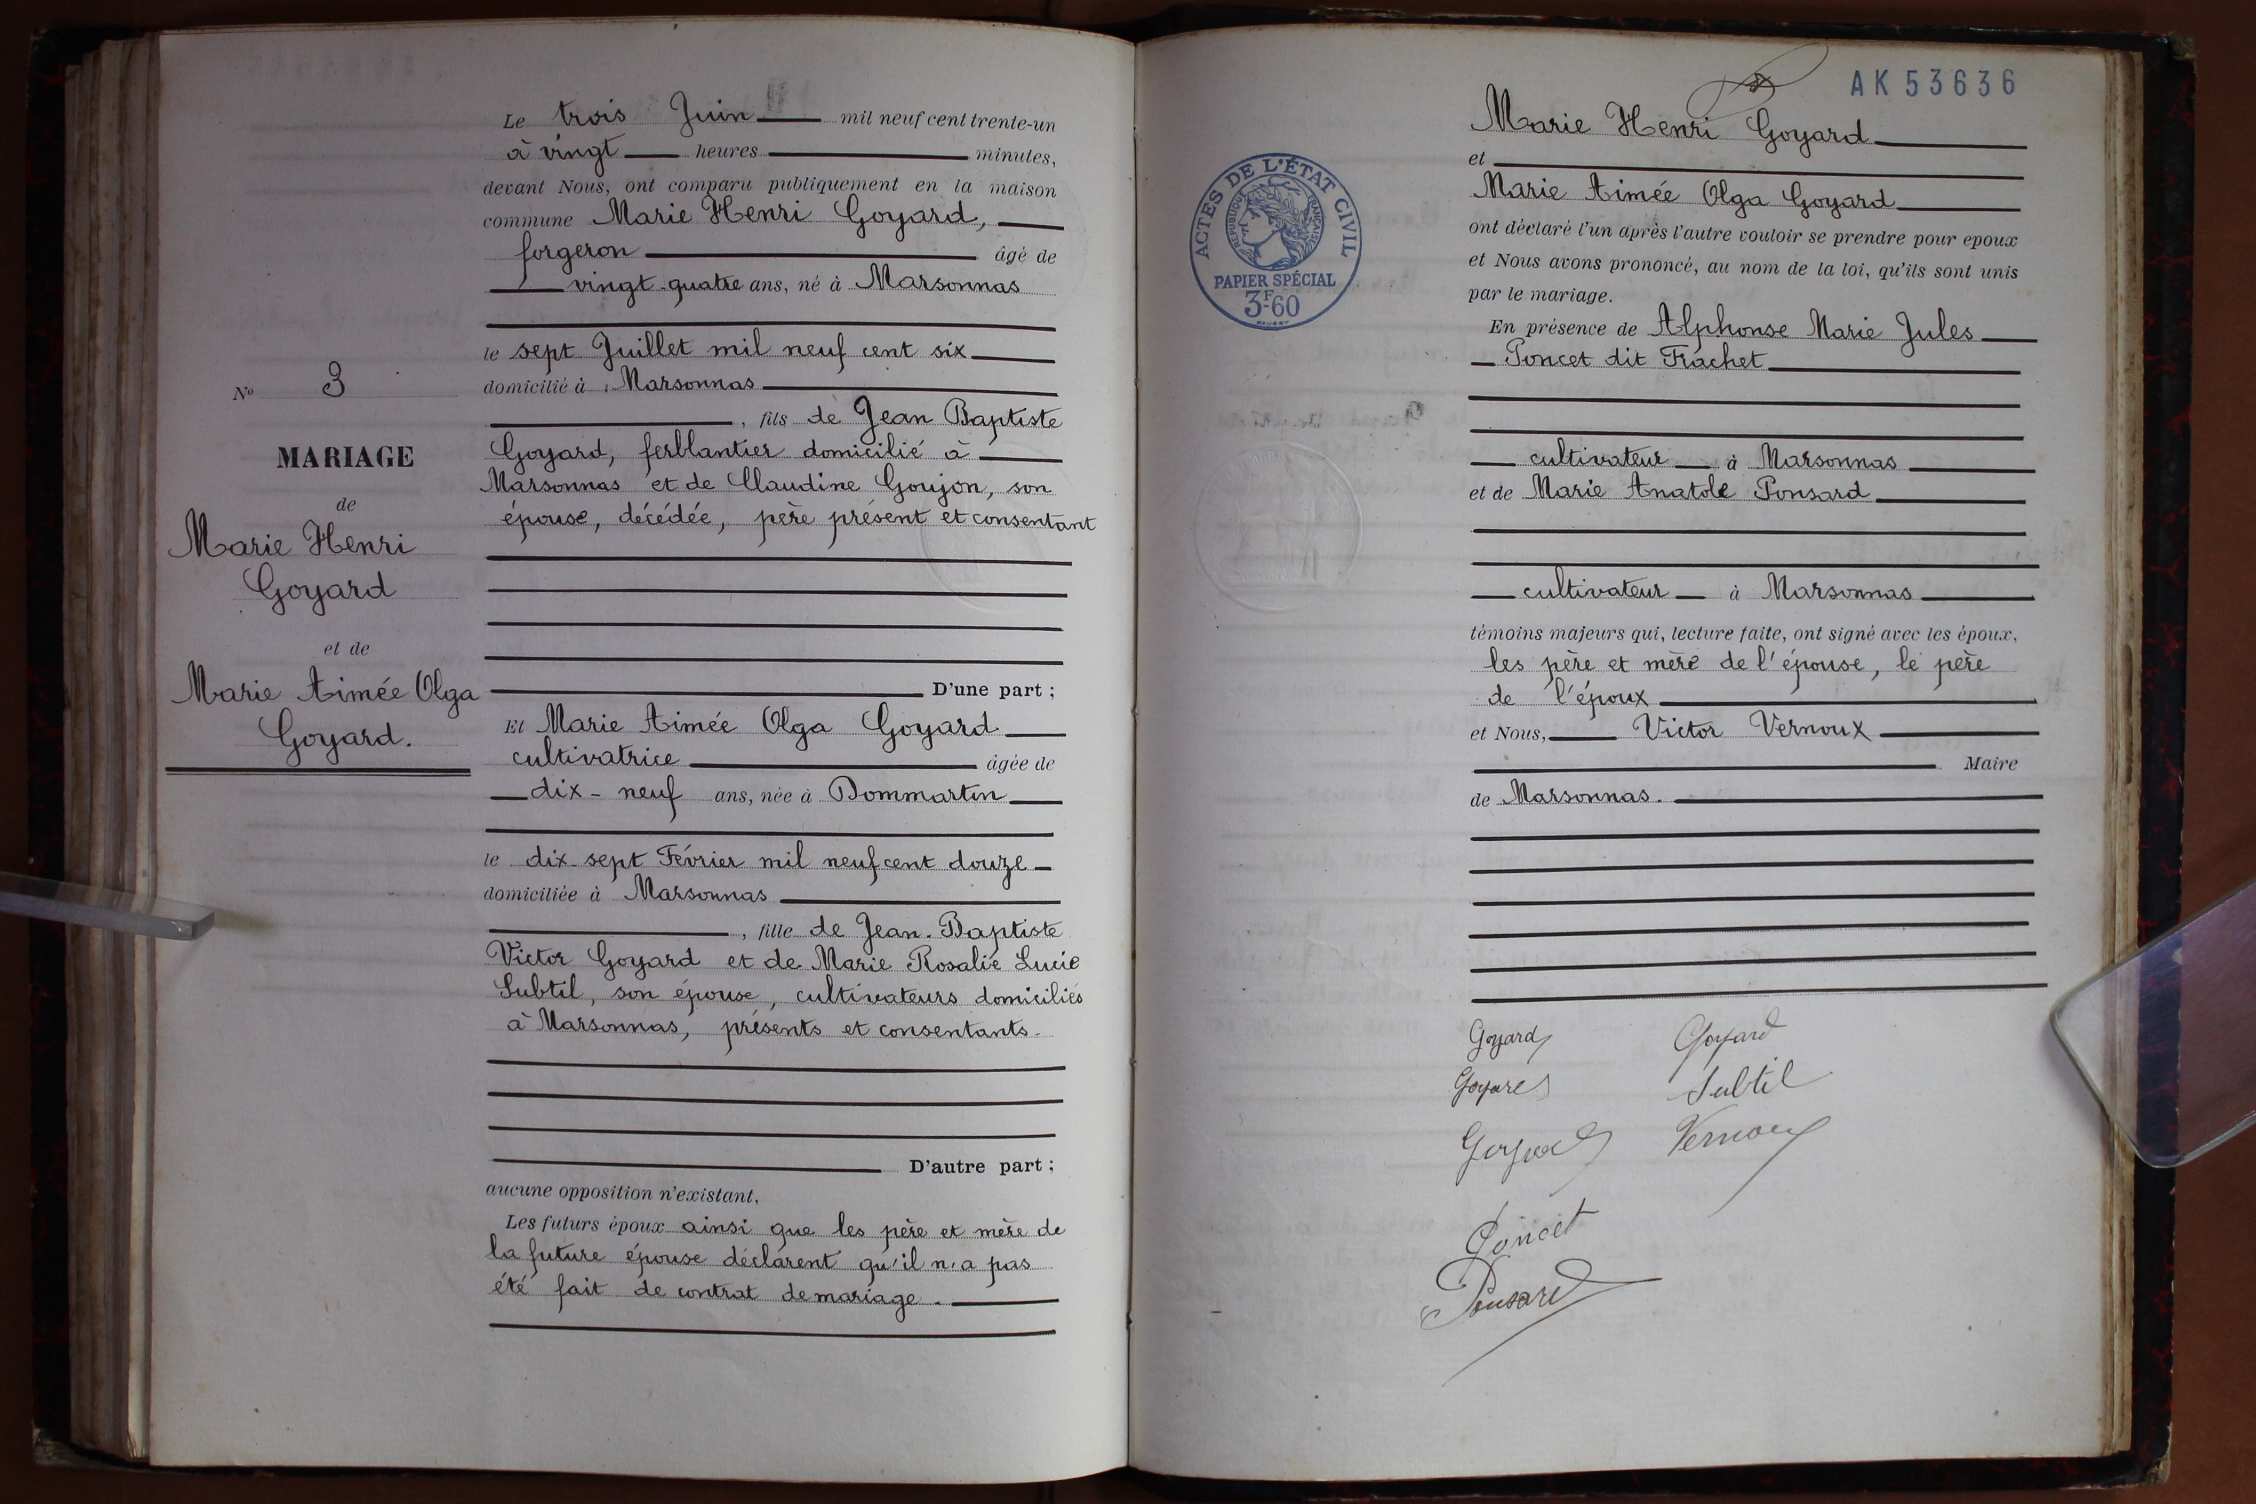 Le trois Juin mil neuf cent trente-un
à vingt heures minutes,
devant Nous, ont comparu publiquement en la maison
commune Marie Henri Goyard,
forgeron âgé de
vingt-quatre ans, né à Marsonnas
le sept Juillet mil neuf cent six
domicilié à Marsonnas
, fils de Jean Baptiste
Goyard, ferblantier domicilié à
Marsonnas et de Claudine Goujon, son
épouse, décédée, père présent et consentant
D'une part ;
Et Marie Aimée Olga Goyard
cultivatrice âgée de
dix-neuf ans, née à Dommartin
le dix-sept Février mil neuf cent douze
domiciliée à Marsonnas
, fille de Jean-Baptiste
Victor Goyard et de Marie Rosalie Lucie
Subtil, son épouse, cultivateurs domiciliés
à Marsonnas, présents et consentants.
D'autre part ;
aucune opposition n'existant,
Les futurs époux ainsi que les père et mère de
la future épouse déclarent qu'il n'a pas
été fait de contrat de mariage.
No 3
MARIAGE
de
Marie Henri
Goyard
et de
Marie Aimée Olga
Goyard.
AK 53636
Marie Henri Goyard
et
Marie Aimée Olga Goyard
ont déclaré l'un après l'autre vouloir se prendre pour époux
et Nous avons prononcé, au nom de la loi, qu'ils sont unis
par le mariage.
En présence de Alphonse Marie Jules
Poncet dit Frachet
cultivateur à Marsonnas
et de Marie Anatole Ponsard
cultivateur à Marsonnas
témoins majeurs qui, lecture faite, ont signé avec les époux,
les père et mère de l'épouse, le père
de l'époux
et Nous, Victor Vernoux
Maire
de Marsonnas.
ACTES DE L'ÉTAT CIVIL
RÉPUBLIQUE FRANÇAISE
PAPIER SPÉCIAL
3F-60
Goyard Goyard
Goyard Subtil
Goyard Vernoux
Poncet
Ponsard